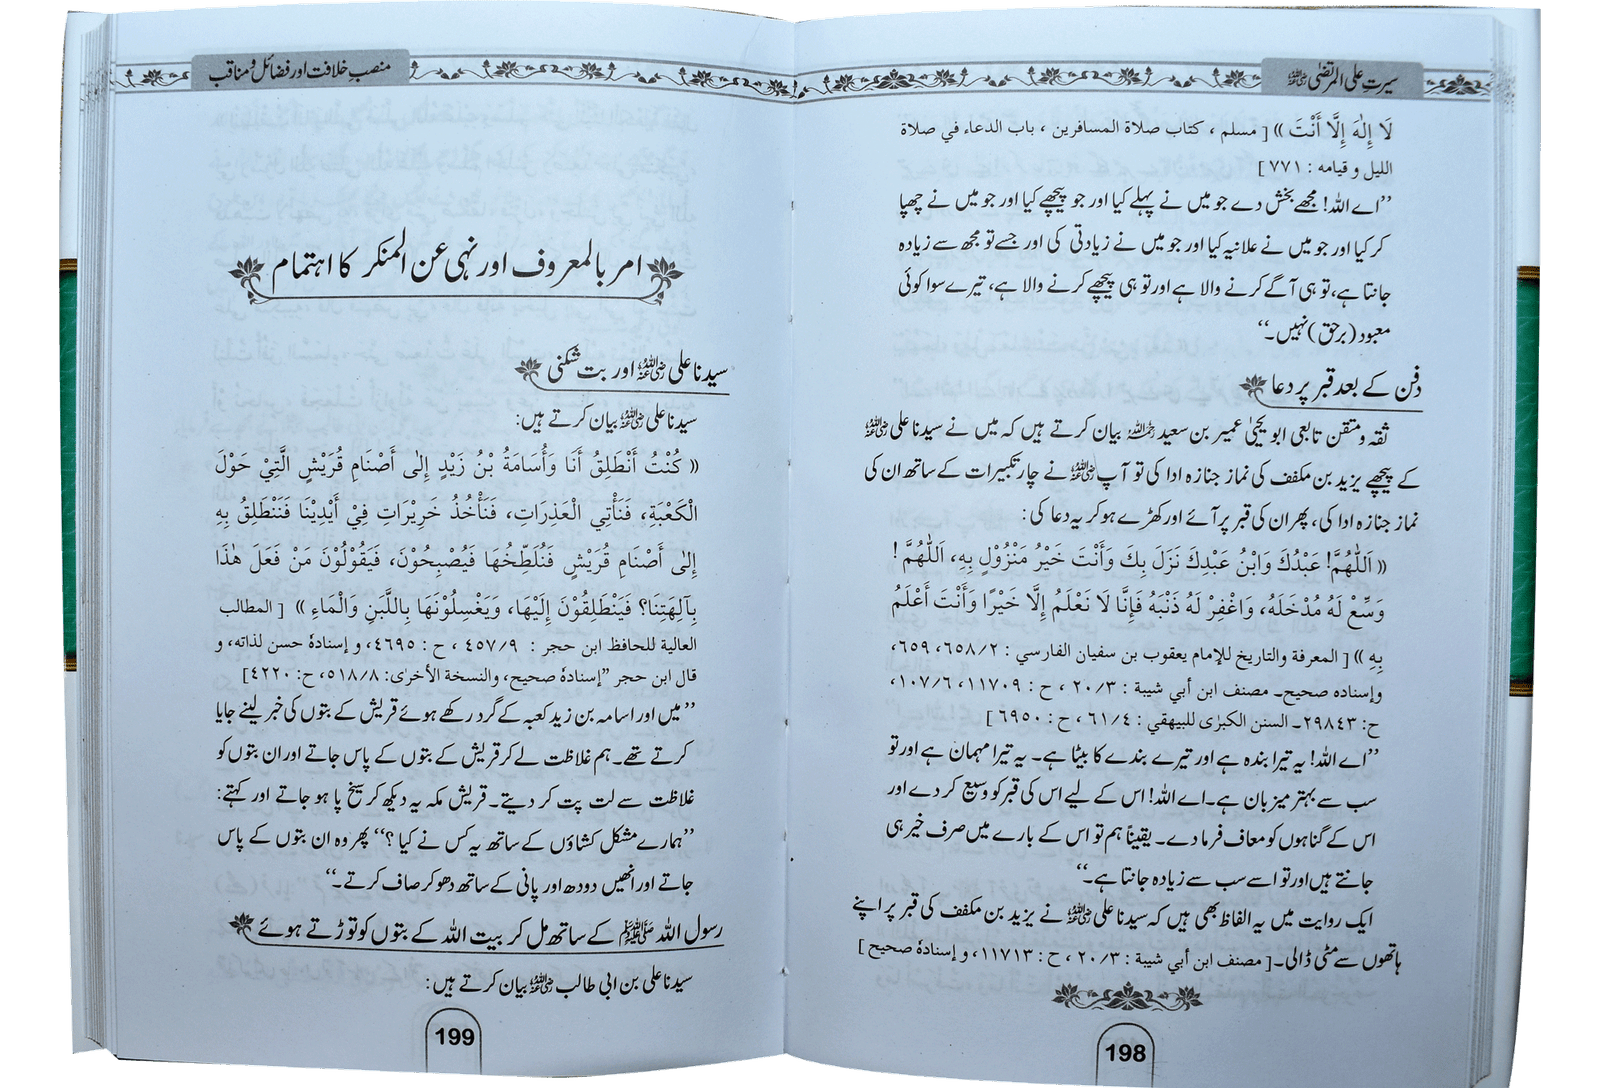 سیرتِ علی المرتضٰی رضی اللہ عنہ
لَا إِلٰهَ إِلَّا أَنْتَ » [ مسلم ، كتاب صلاة المسافرين ، باب الدعاء في صلاة
الليل و قيامه : ٧٧١ ]
”اے اللہ! مجھے بخش دے جو میں نے پہلے کیا اور جو پیچھے کیا اور جو میں نے چھپا
کر کیا اور جو میں نے علانیہ کیا اور جو میں نے زیادتی کی اور جسے تو مجھ سے زیادہ
جانتا ہے، تو ہی آگے کرنے والا ہے اور تو ہی پیچھے کرنے والا ہے، تیرے سوا کوئی
معبود (برحق) نہیں۔“
دفن کے بعد قبر پر دعا
ثقہ و متقن تابعی ابو یحییٰ عمیر بن سعید رحمہ اللہ بیان کرتے ہیں کہ میں نے سیدنا علی رضی اللہ عنہ
کے پیچھے یزید بن مکفف کی نماز جنازہ ادا کی تو آپ رضی اللہ عنہ نے چار تکبیرات کے ساتھ ان کی
نماز جنازہ ادا کی، پھر ان کی قبر پر آئے اور کھڑے ہو کر یہ دعا کی:
« اَللّٰهُمَّ! عَبْدُكَ وَابْنُ عَبْدِكَ نَزَلَ بِكَ وَأَنْتَ خَيْرُ مَنْزُوْلٍ بِهِ، اَللّٰهُمَّ !
وَسِّعْ لَهُ مُدْخَلَهُ، وَاغْفِرْ لَهُ ذَنْبَهُ فَإِنَّا لَا نَعْلَمُ إِلَّا خَيْرًا وَأَنْتَ أَعْلَمُ
بِهِ » [ المعرفة والتاريخ للإمام يعقوب بن سفيان الفارسي : ٢/ ٦٥٨، ٦٥٩،
وإسناده صحيح۔ مصنف ابن أبي شيبة : ٣/ ٢٠، ح : ١١٧٠٩، ٦/ ١٠٧،
ح: ٢٩٨٤٣۔ السنن الكبرٰى للبيهقي : ٤/ ٦١، ح : ٦٩٥٠ ]
”اے اللہ! یہ تیرا بندہ ہے اور تیرے بندے کا بیٹا ہے۔ یہ تیرا مہمان ہے اور تو
سب سے بہتر میزبان ہے۔ اے اللہ! اس کے لیے اس کی قبر کو وسیع کر دے اور
اس کے گناہوں کو معاف فرما دے۔ یقیناً ہم تو اس کے بارے میں صرف خیر ہی
جانتے ہیں اور تو اسے سب سے زیادہ جانتا ہے۔“
ایک روایت میں یہ الفاظ بھی ہیں کہ سیدنا علی رضی اللہ عنہ نے یزید بن مکفف کی قبر پر اپنے
ہاتھوں سے مٹی ڈالی۔ [ مصنف ابن أبي شيبة : ٣/ ٢٠، ح : ١١٧١٣، و إسنادهٗ صحيح ]
198
منصبِ خلافت اور فضائل و مناقب
امر بالمعروف اور نہی عن المنکر کا اہتمام
سیدنا علی رضی اللہ عنہ اور بت شکنی
سیدنا علی رضی اللہ عنہ بیان کرتے ہیں:
« كُنْتُ أَنْطَلِقُ أَنَا وَأُسَامَةُ بْنُ زَيْدٍ إِلٰى أَصْنَامِ قُرَيْشٍ الَّتِيْ حَوْلَ
الْكَعْبَةِ، فَنَأْتِي الْعَذِرَاتِ، فَنَأْخُذُ خَرِيْرَاتٍ فِيْ أَيْدِيْنَا فَنَنْطَلِقُ بِهِ
إِلٰى أَصْنَامِ قُرَيْشٍ فَنُلَطِّخُهَا فَيُصْبِحُوْنَ، فَيَقُوْلُوْنَ مَنْ فَعَلَ هٰذَا
بِآلِهَتِنَا؟ فَيَنْطَلِقُوْنَ إِلَيْهَا، وَيَغْسِلُوْنَهَا بِاللَّبَنِ وَالْمَاءِ » [ المطالب
العالية للحافظ ابن حجر : ٩/ ٤٥٧ ، ح : ٤٦٩٥، و إسنادهٗ حسن لذاته، و
قال ابن حجر ”إسنادهٗ صحيح، والنسخة الأخرٰى: ٨/ ٥١٨، ح: ٤٢٢٠]
”میں اور اسامہ بن زید کعبہ کے گرد رکھے ہوئے قریش کے بتوں کی خبر لینے جایا
کرتے تھے۔ ہم غلاظت لے کر قریش کے بتوں کے پاس جاتے اور ان بتوں کو
غلاظت سے لت پت کر دیتے۔ قریش مکہ یہ دیکھ کر سیخ پا ہو جاتے اور کہتے:
”ہمارے مشکل کشاؤں کے ساتھ یہ کس نے کیا ؟“ پھر وہ ان بتوں کے پاس
جاتے اور انھیں دودھ اور پانی کے ساتھ دھو کر صاف کرتے۔“
رسول اللہ ﷺ کے ساتھ مل کر بیت اللہ کے بتوں کو توڑتے ہوئے
سیدنا علی بن ابی طالب رضی اللہ عنہ بیان کرتے ہیں:
199